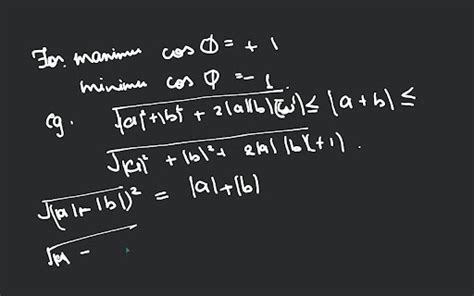 For maximum cos Φ = + 1
minimum cos φ = - 1
eg. √|a|²+|b|² + 2|a||b|(-1) ≤ |a+b| ≤
√|a|² + |b|² + 2|a| |b|(+1) .
√(|a|+|b|)² = |a|+|b|
√|a| -